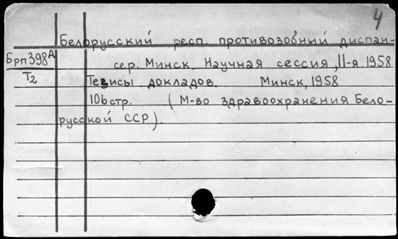 4
Белорусский респ. противозобный диспан-
Брп398д
сер. Минск. Научная сессия, II-я. 1958
Т2
Тезисы докладов. Минск, 1958
106стр. (М-во здравоохранения Бело-
русской ССР).